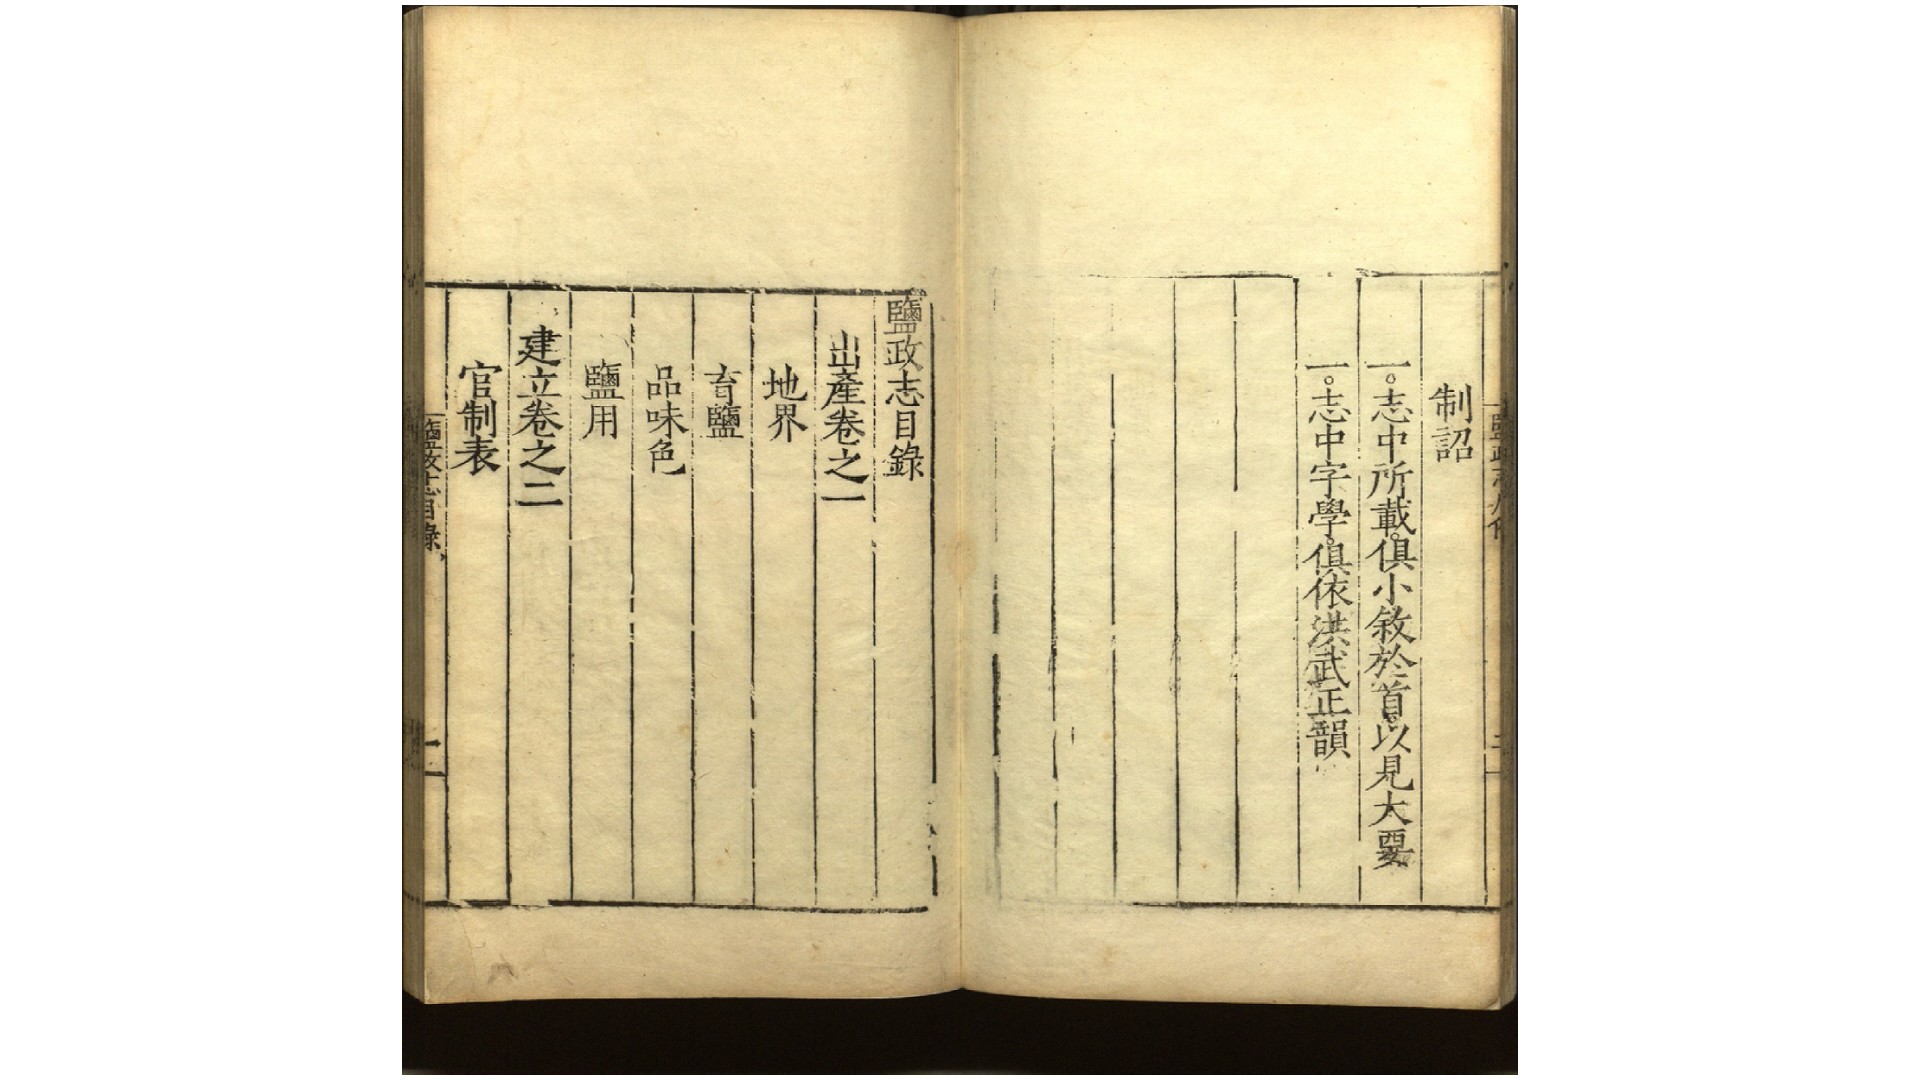 制詔
一。志中所載。俱小敘於首。以見大要
一。志中字學。俱依洪武正韻
鹽政志目錄
出產卷之一
地界
育鹽
品味色
鹽用
建立卷之二
官制表
鹽政志目錄